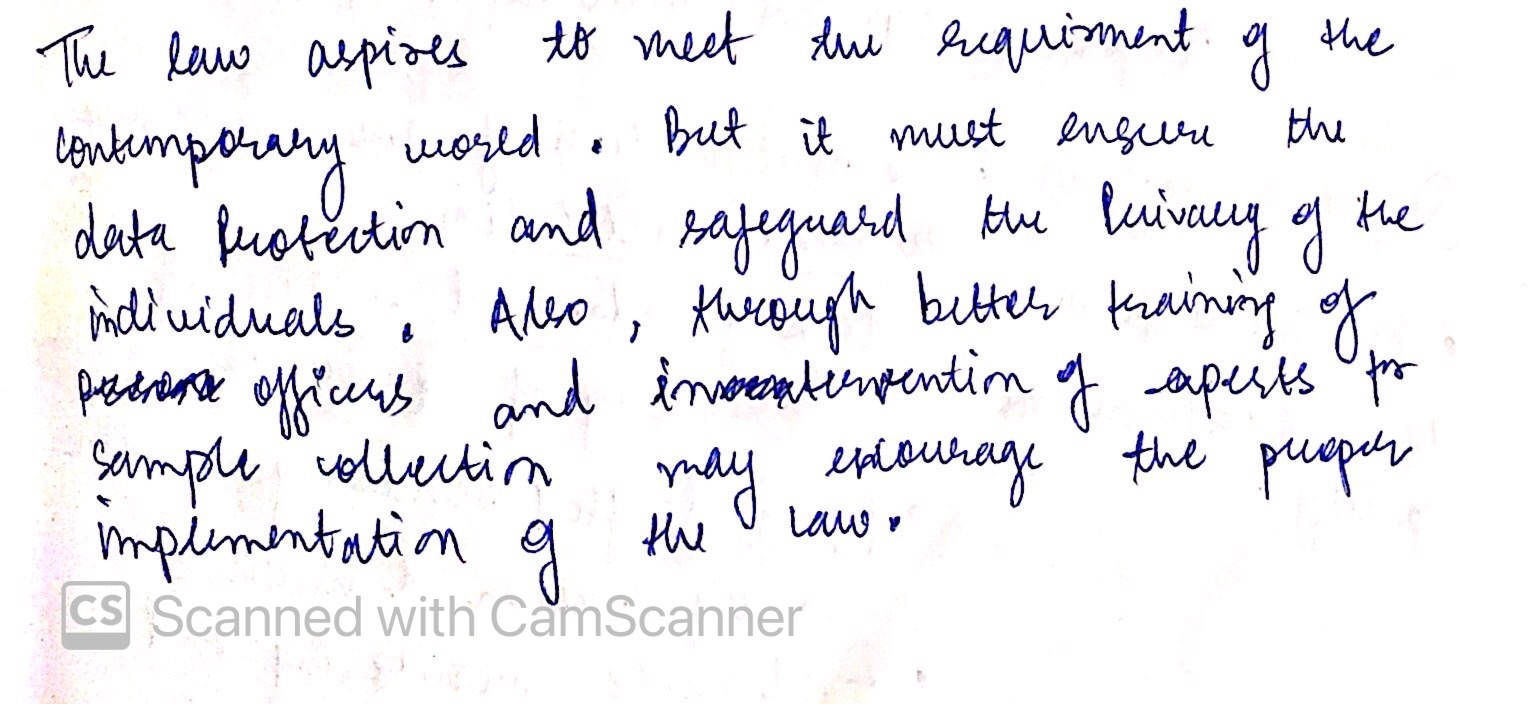 The law aspires to meet the requirment of the
contemporary world. But it must ensure the
data Protection and safeguard the Privacy of the
individuals. Also, through better training of
officers and intervention of experts for
sample collection may encourage the proper
implementation of the law.
CS Scanned with CamScanner